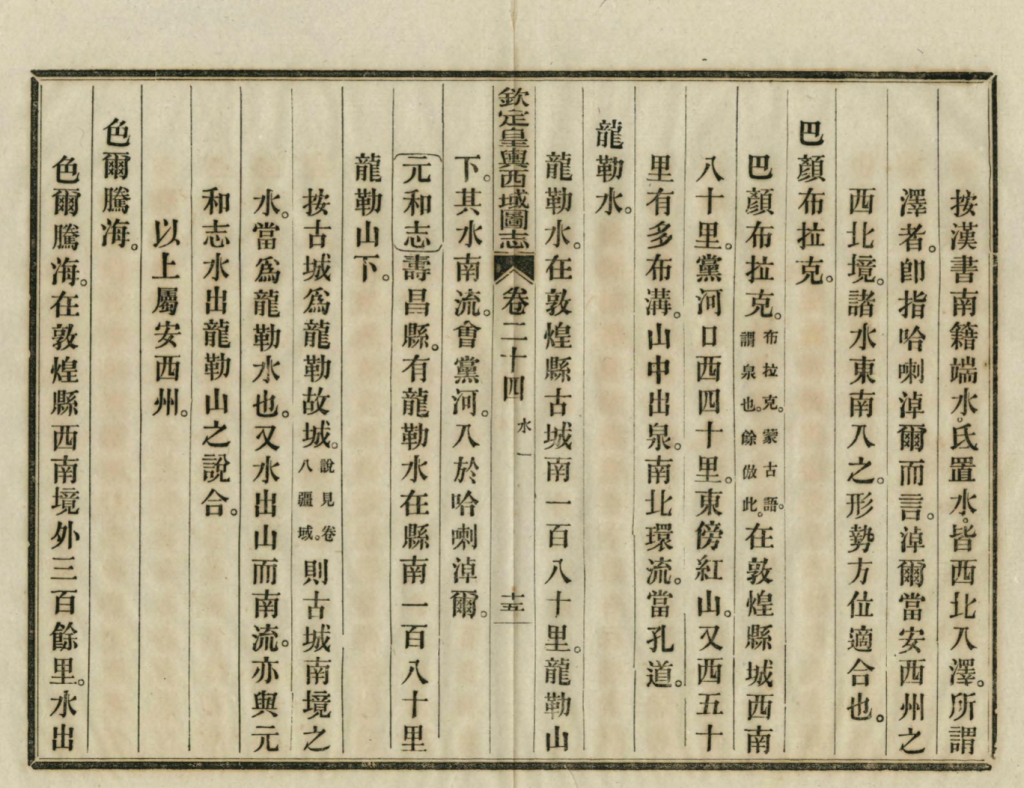 按漢書南籍端水。氐置水。皆西北入澤。所謂
澤者。卽指哈喇淖爾而言。淖爾當安西州之
西北境。諸水東南入之。形勢方位適合也。
巴顏布拉克。
巴顏布拉克。布拉克。蒙古語。謂泉也。餘倣此。在敦煌縣城西南
八十里。黨河口西四十里。東傍紅山。又西五十
里有多布溝。山中出泉。南北環流。當孔道。
龍勒水。
龍勒水。在敦煌縣古城南一百八十里。龍勒山
欽定皇輿西域圖志 卷二十四 水一 十五
下。其水南流。會黨河。入於哈喇淖爾。
元和志壽昌縣。有龍勒水在縣南一百八十里
龍勒山下。
按古城爲龍勒故城。說見卷八疆域。則古城南境之
水。當爲龍勒水也。又水出山而南流。亦與元
和志水出龍勒山之說合。
以上屬安西州。
色爾騰海。
色爾騰海。在敦煌縣西南境外三百餘里。水出